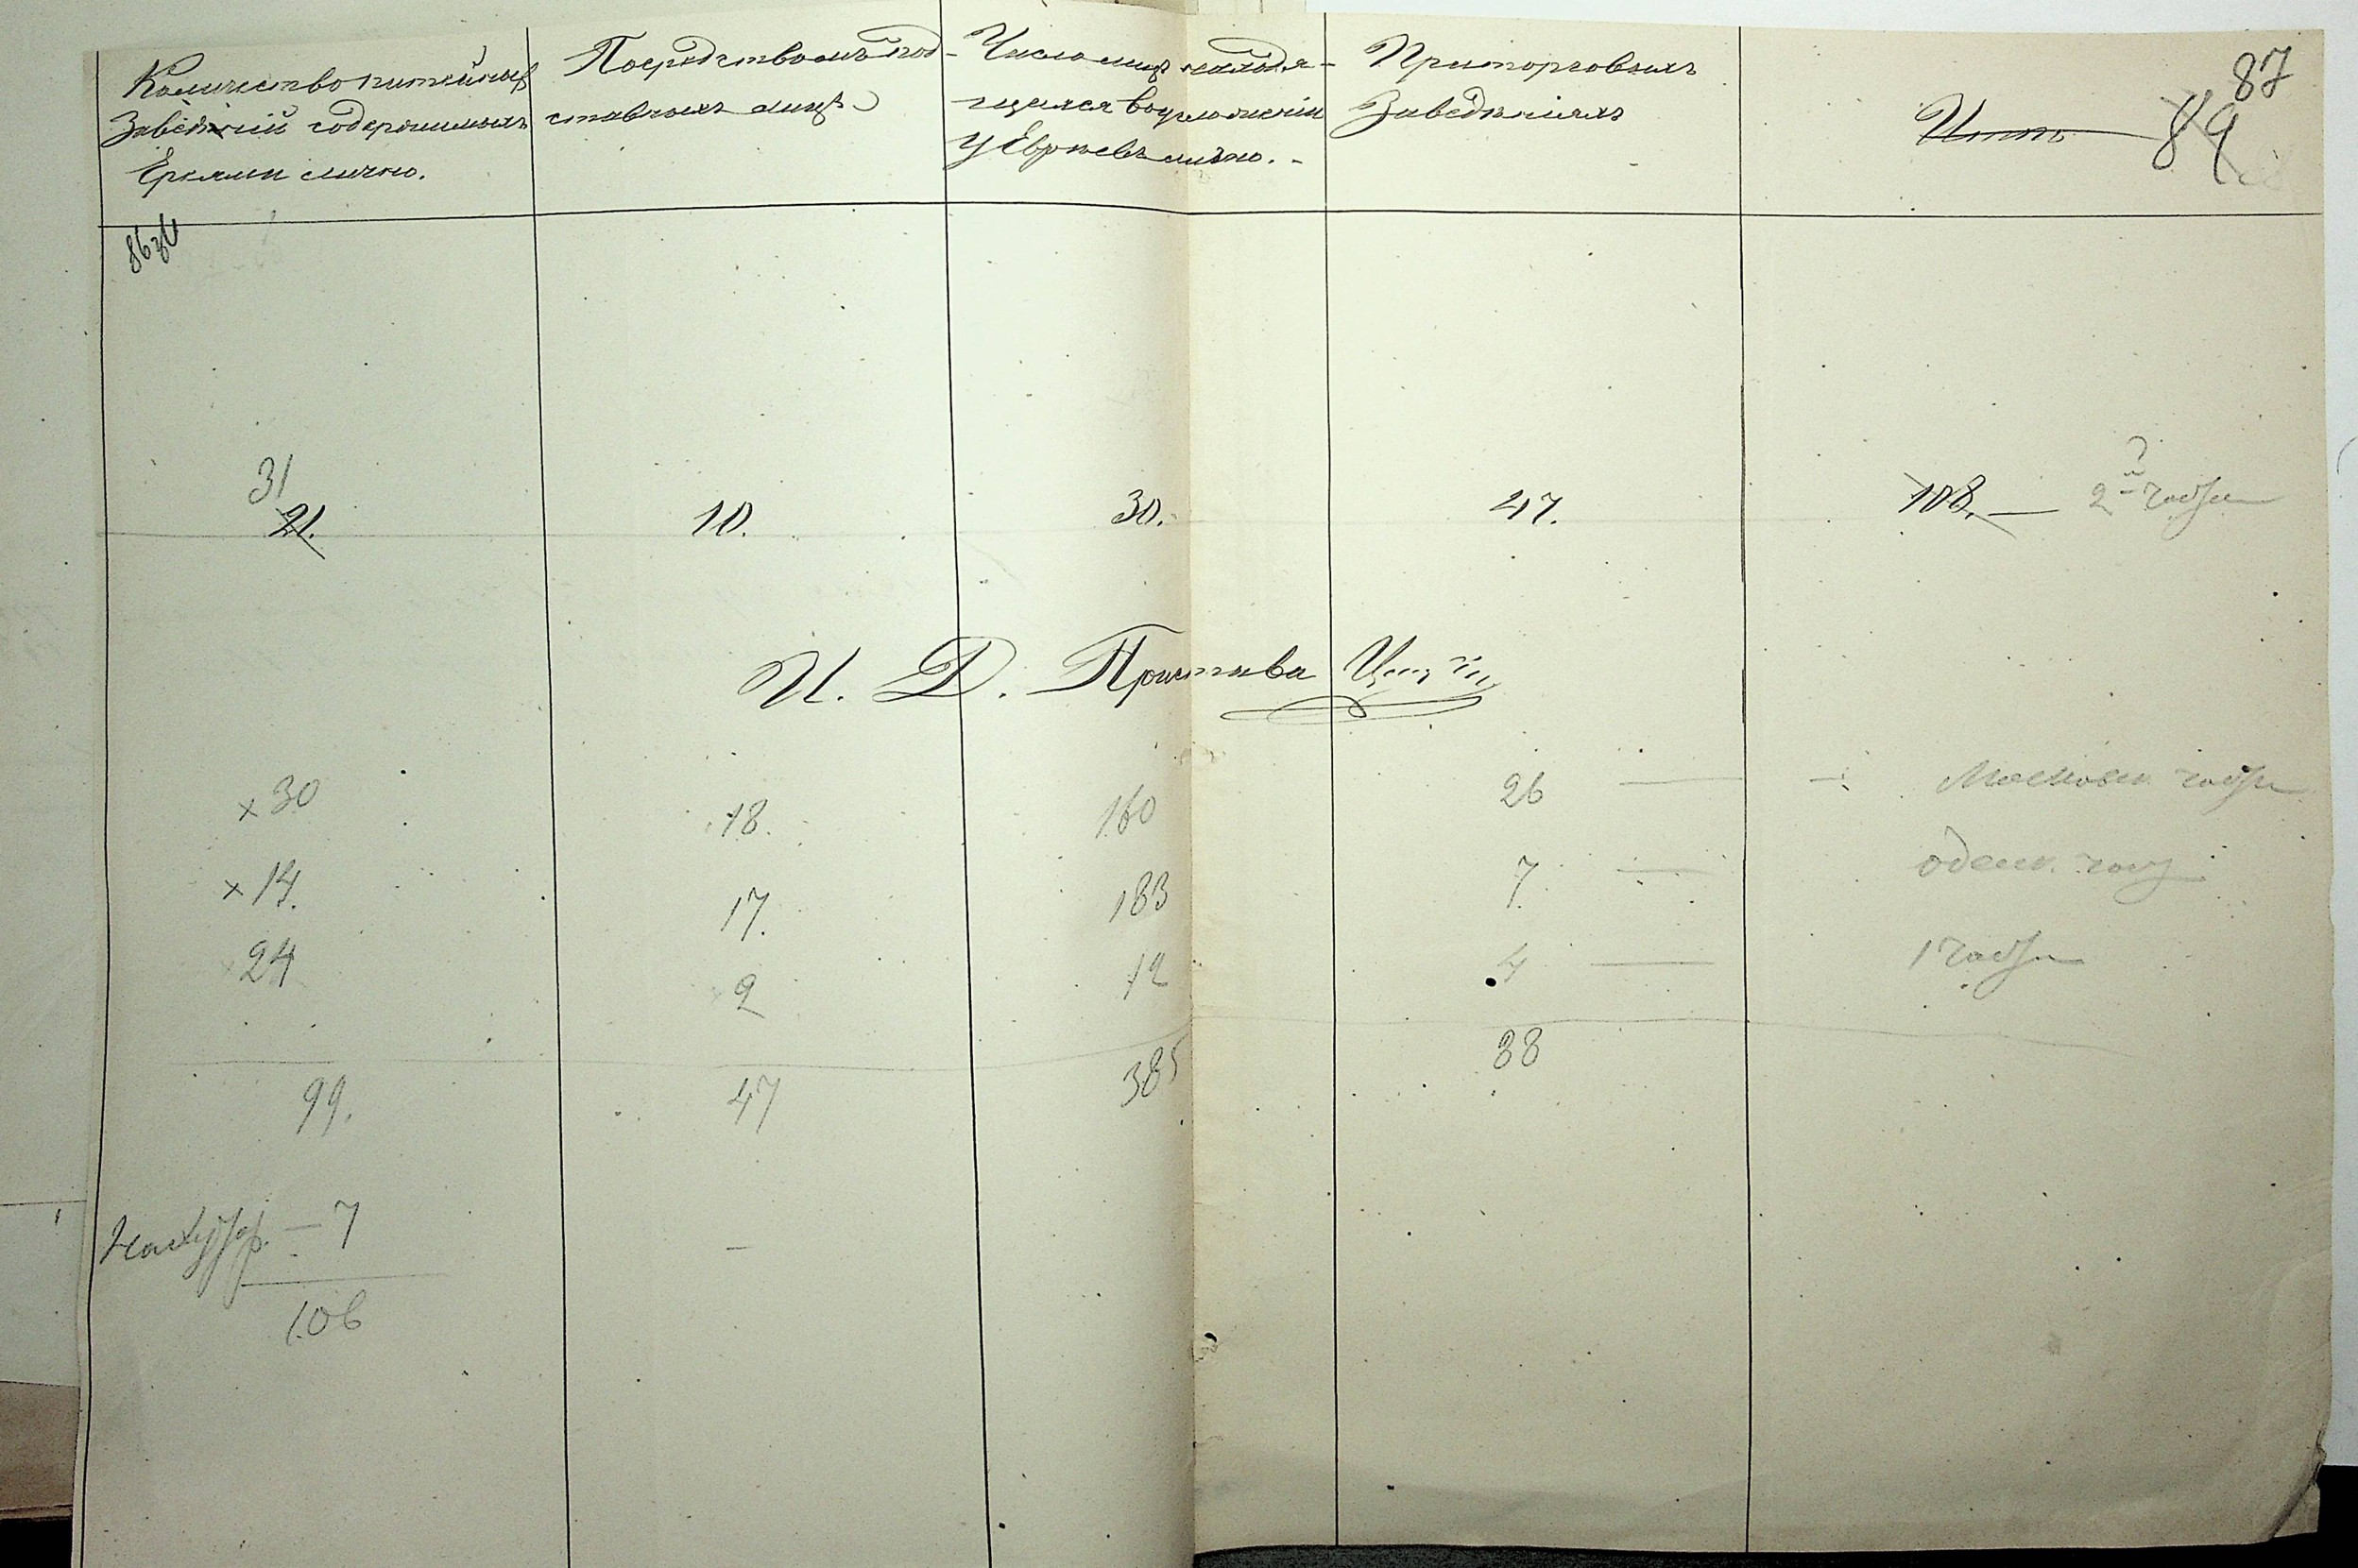 87
89
Количество питейныхъ
Заведеній содержимыхъ
Евреями лично.
Посредствомъ под-
ставныхъ лицъ
Число лицъ находя-
щихся въ услуженіи
у Евреевъ лично.
При торговыхъ
Заведеніяхъ
Итого
86 об
31
21. 10. 30. 47. 108. — 2й части
И. Д. Пристава
×30 18. 160 26 — Московск. части
×14. 17. 183 7 — одесск. част
24 2 12 4 — 1 части
99. 47 385 38
На хутор. — 7 —
106